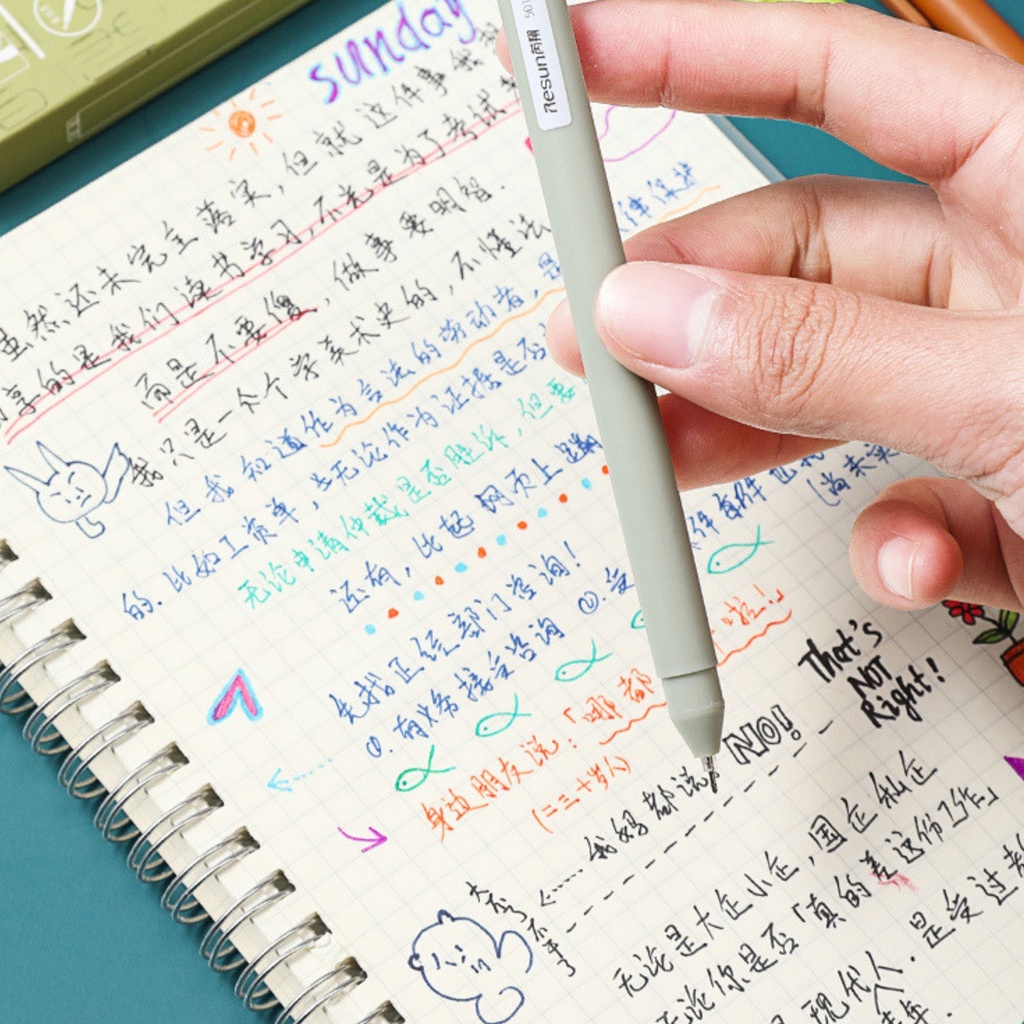 sunday
虽然还未完全落实,但就这件事我
享的是我们读书学习,不光是为了考试
而是不要傻,做事要明智.
我只是一个学美术史的,不懂法律保护
但我知道作为合法的劳动者,是
的.比如工资单,无论作为证据是否
无论申请仲裁是否胜诉,但要
还有,比起网页上
先找正经部门咨询!
①.有义务接受咨询 ②.
身边朋友说:「哪都 啦!」
(二三十岁人)
我妈都说 NO!
That's
NOT
Right!
大不了不干了
无论是大企小企,国企私企
无论你是否「真的差这份工作」
现代人.是受过教
Resun尚顺